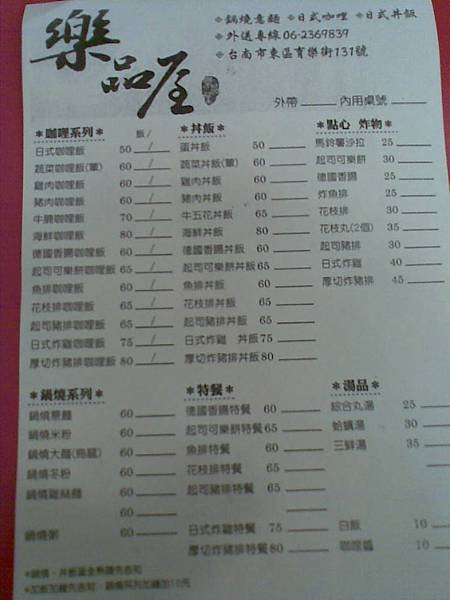 樂品屋
＊鍋燒意麵 ＊日式咖哩 ＊日式丼飯
＊外送專線06-2369839
＊台南市東區育樂街131號
外帶_____內用桌號_____
＊咖哩系列＊ 飯/
日式咖哩飯 50 /
蔬菜咖哩飯(單) 60 /
雞肉咖哩飯 60 /
豬肉咖哩飯 60 /
牛腩咖哩飯 70 /
海鮮咖哩飯 80 /
德國香腸咖哩飯 60 /
起司可樂餅咖哩飯 65 /
魚排咖哩飯 60 /
花枝排咖哩飯 65 /
起司豬排咖哩飯 65 /
日式炸雞咖哩飯 75 /
厚切炸豬排咖哩飯 80 /
＊丼飯＊
蛋丼飯 50
蔬菜丼飯(單) 60
雞肉丼飯 60
豬肉丼飯 60
牛五花丼飯 65
海鮮丼飯 80
德國香腸丼飯 60
起司可樂餅丼飯 65
魚排丼飯 60
花枝排丼飯 65
起司豬排丼飯 65
日式炸雞 丼飯 75
厚切炸豬排丼飯 80
＊點心 炸物＊
馬鈴薯沙拉 25
起司可樂餅 30
德國香腸 25
炸魚排 25
花枝排 30
花枝丸(2個) 35
起司豬排 30
日式炸雞 40
厚切炸豬排 45
＊鍋燒系列＊
鍋燒意麵 60
鍋燒米粉 60
鍋燒大麵(烏龍) 60
鍋燒冬粉 60
鍋燒雞絲麵 60
60
鍋燒粥 60
＊特餐＊
德國香腸特餐 60
起司可樂餅特餐 65
魚排特餐 60
花枝排特餐 65
起司豬排特餐 65
日式炸雞特餐 75
厚切炸豬排特餐 80
＊湯品＊
綜合丸湯 25
蛤蠣湯 30
三鮮湯 35
白飯 10
咖哩醬 10
＊鍋燒、丼飯蛋全熟請先告知
＊加飯加麵先告知，鍋燒系列加麵加10元